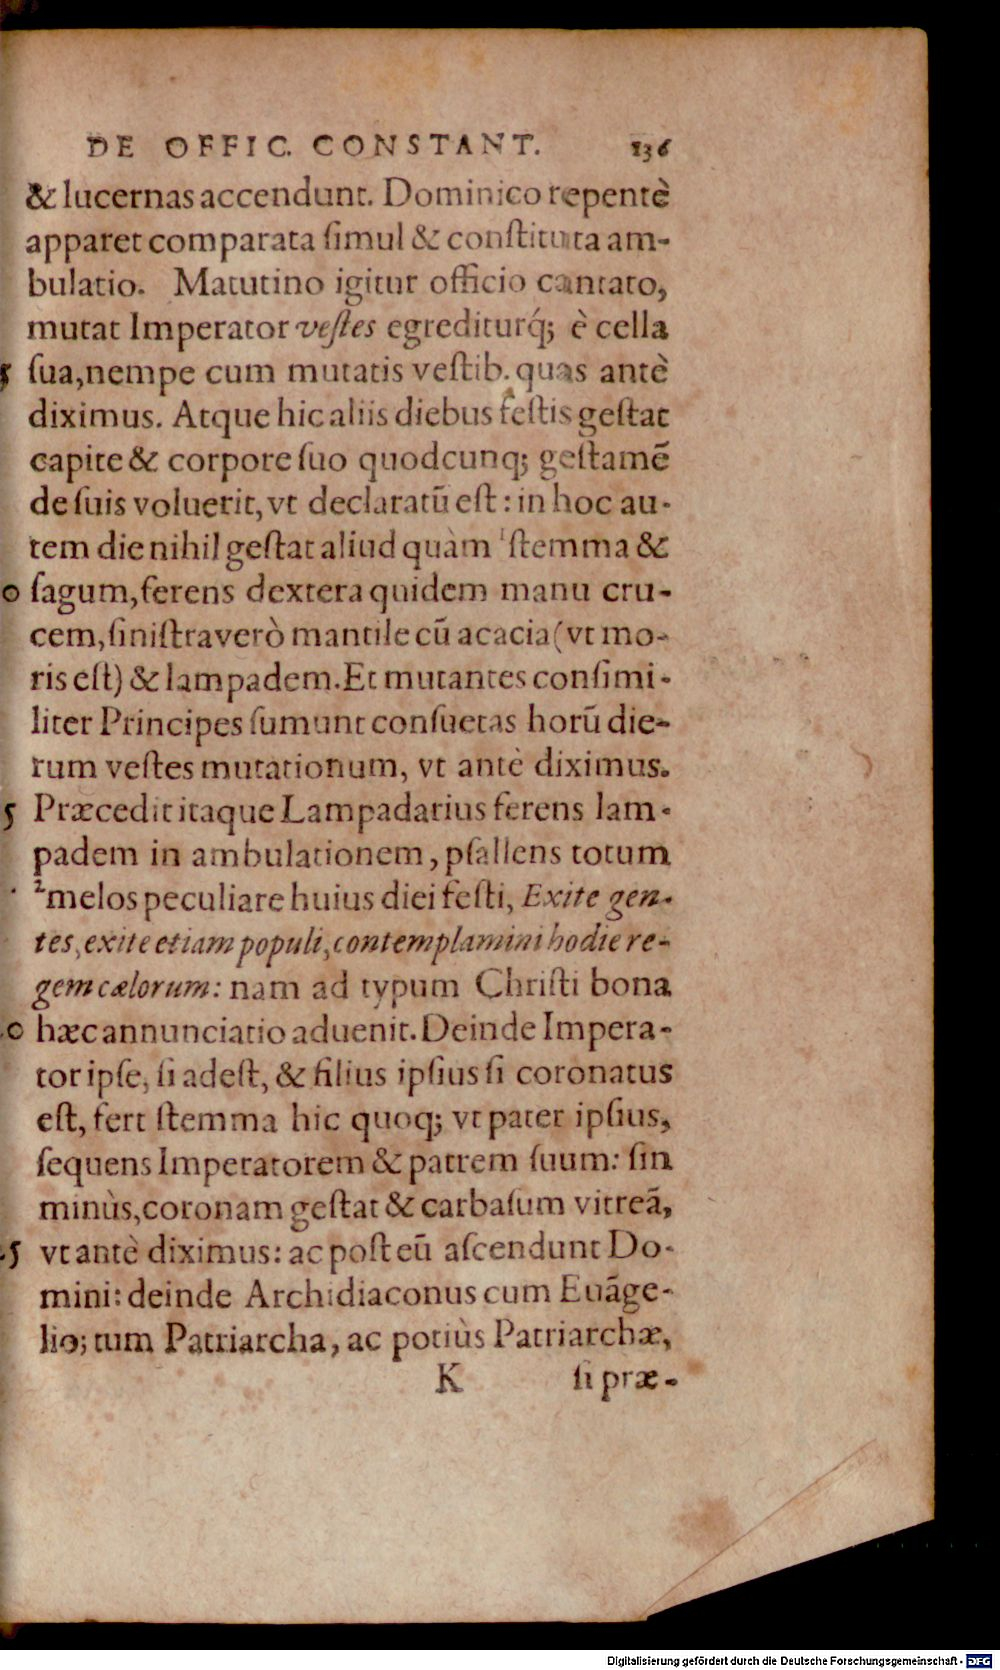 DE OFFIC. CONSTANT. 136
& lucernas accendunt. Dominico repentè
apparet comparata ſimul & conſtituta am-
bulatio. Matutino igitur officio cantato,
mutat Imperator veſtes egrediturq́; è cella
5 ſua, nempe cum mutatis veſtib. quas antè
diximus. Atque hic aliis diebus feſtis geſtat
capite & corpore ſuo quodcunq; geſtamẽ
de ſuis voluerit, vt declaratũ eſt: in hoc au-
tem die nihil geſtat aliud quàm ¹ſtemma &
0 ſagum, ferens dextera quidem manu cru-
cem, ſiniſtra verò mantile cũ acacia (vt mo-
ris eſt) & lampadem. Et mutantes conſimi-
liter Principes ſumunt conſuetas horũ die-
rum veſtes mutationum, vt antè diximus.
5 Præcedit itaque Lampadarius ferens lam-
padem in ambulationem, pſallens totum
²melos peculiare huius diei feſti, Exite gen-
tes, exite etiam populi, contemplamini hodie re-
gem cælorum: nam ad typum Chriſti bona
0 hæc annunciatio aduenit. Deinde Impera-
tor ipſe, ſi adeſt, & filius ipſius ſi coronatus
eſt, fert ſtemma hic quoq; vt pater ipſius,
ſequens Imperatorem & patrem ſuum: ſin
minùs, coronam geſtat & carbaſum vitreã,
5 vt antè diximus: ac poſt eũ aſcendunt Do-
mini: deinde Archidiaconus cum Euãge-
lio; tum Patriarcha, ac potiùs Patriarchæ,
K ſi præ-
Digitalisierung gefördert durch die Deutsche Forschungsgemeinschaft - DFG